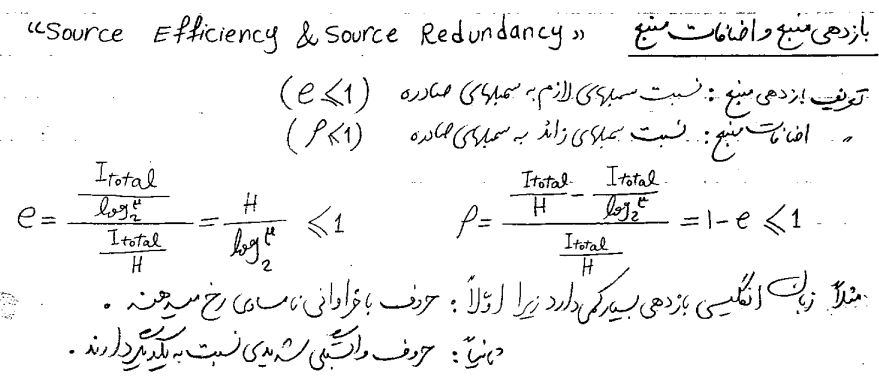 بازدهی منبع و اضافات منبع «Source Efficiency & Source Redundancy»
تعریف بازدهی منبع : نسبت سمبلهای لازم به سمبلهای صادره (e ⩽ 1)
" اضافات منبع : نسبت سمبلهای زائد به سمبلهای صادره (ρ ⩽ 1)
e = (I_total / log₂^μ) / (I_total / H) = H / log₂^μ ⩽ 1    ρ = (I_total / H − I_total / log₂^μ) / (I_total / H) = 1 − e ⩽ 1
مثلاً زبان انگلیسی بازدهی بسیار کمی دارد زیرا اولاً : حروف با فراوانی نامساوی رخ میدهند .
ثانیاً : حروف وابستگی شدیدی نسبت به یکدیگر دارند .